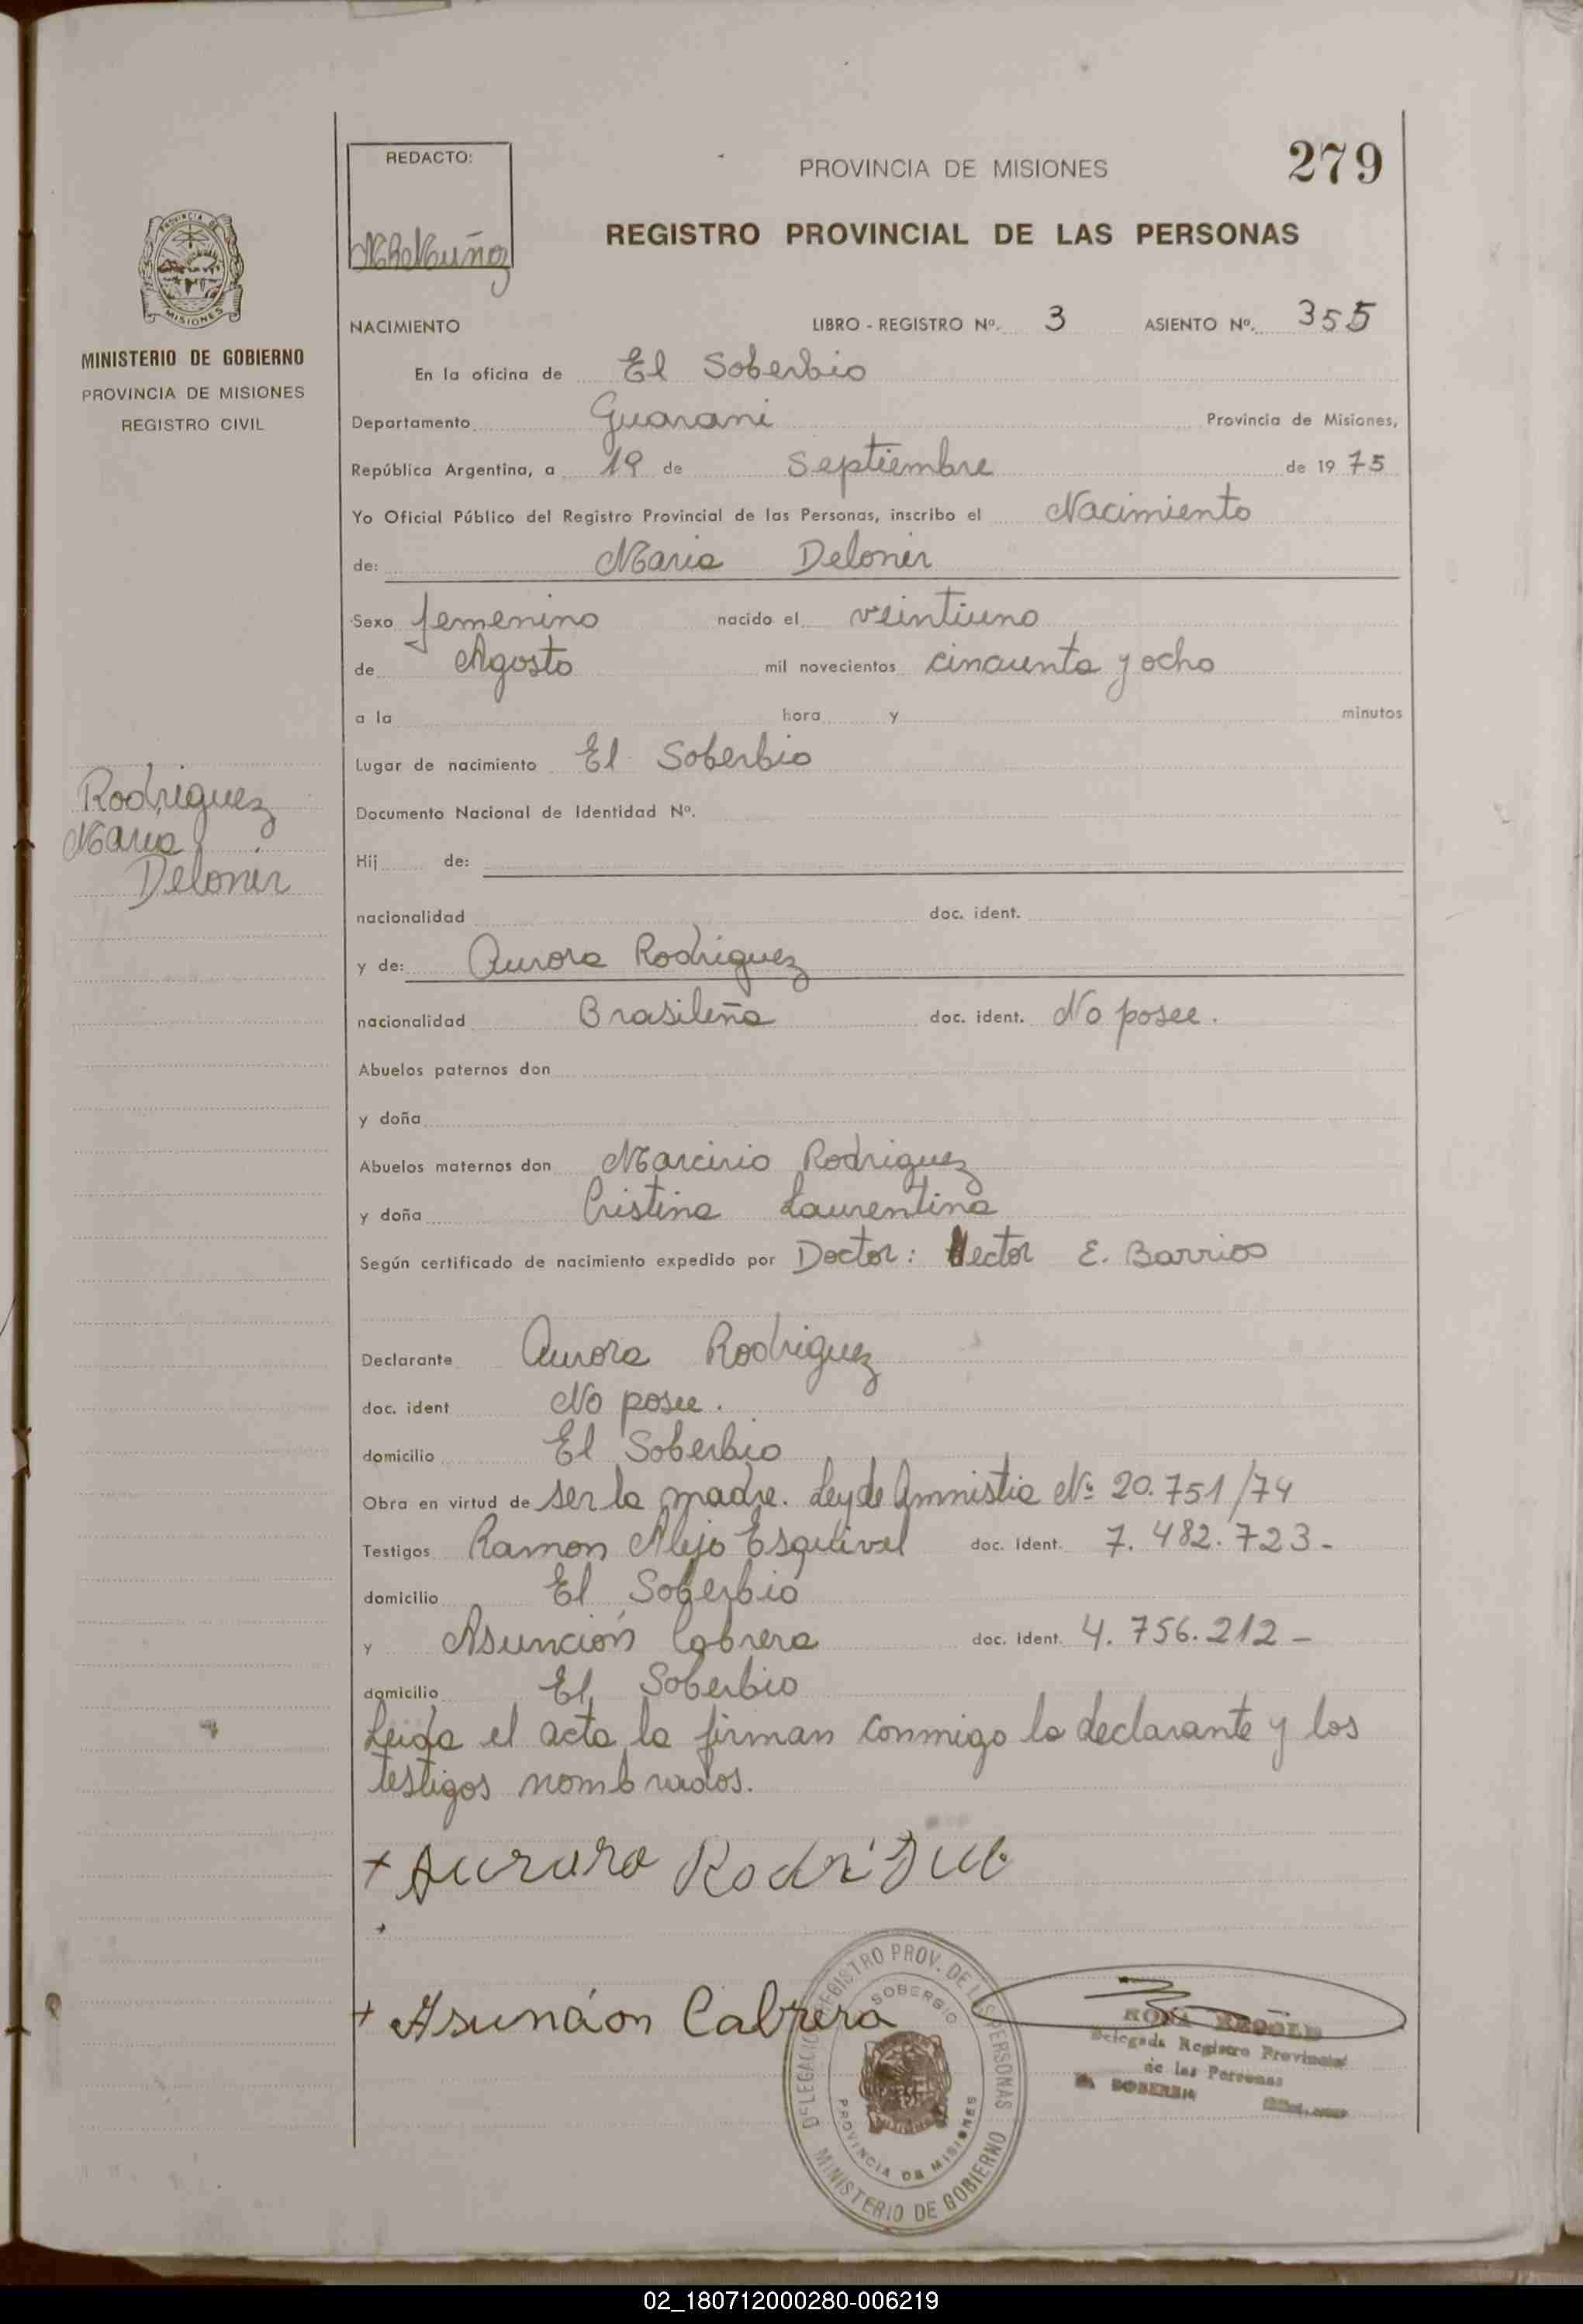 REDACTO:
PROVINCIA DE MISIONES
279
REGISTRO PROVINCIAL DE LAS PERSONAS
PROVINCIA DE
MISIONES
MINISTERIO DE GOBIERNO
PROVINCIA DE MISIONES
REGISTRO CIVIL
NACIMIENTO LIBRO - REGISTRO Nº. 3 ASIENTO Nº. 355
En la oficina de El Soberbio
Departamento Guarani Provincia de Misiones,
República Argentina, a 19 de Septiembre de 19 75
Yo Oficial Público del Registro Provincial de las Personas, inscribo el Nacimiento
de: Maria Delonir
Sexo femenino nacido el veintiuno
de Agosto mil novecientos cincuenta y ocho
a la hora y minutos
Lugar de nacimiento El Soberbio
Rodriguez
Maria
Delonir
Documento Nacional de Identidad Nº.
Hij de:
nacionalidad doc. ident.
y de: Aurora Rodriguez
nacionalidad Brasileña doc. ident. No posee.
Abuelos paternos don
y doña
Abuelos maternos don Marcirio Rodriguez
y doña Cristina Laurentina
Según certificado de nacimiento expedido por Doctor: Hector E. Barrios
Declarante Aurora Rodriguez
doc. ident No posee.
domicilio El Soberbio
Obra en virtud de ser la madre. Ley de Amnistia Nº 20.751/74
Testigos Ramon Alejo Esquivel doc. ident. 7.482.723-
domicilio El Soberbio
y Asunción Cabrera doc. ident. 4.756.212-
domicilio El Soberbio
Leida el acta la firman conmigo la declarante y los
testigos nombrados.
+ Aurora Rodrigue
+
+ Asuncion Cabrera
DELEGACION REGISTRO PROV. DE LAS PERSONAS
SOBERBIO
PROVINCIA DE MISIONES
MINISTERIO DE GOBIERNO
Delegada Registro Provincial
de las Personas
SOBERBIO
02_180712000280-006219